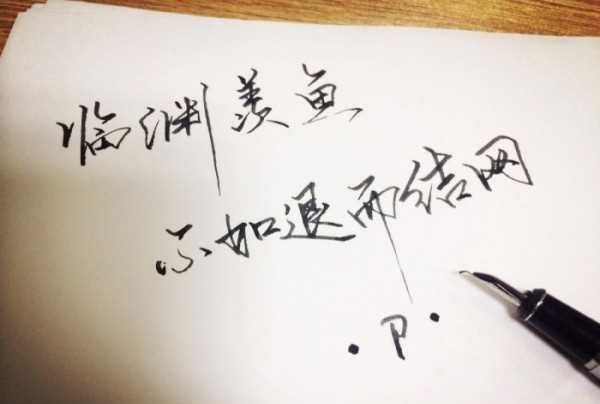 临渊羡鱼
不如退而结网
.P.